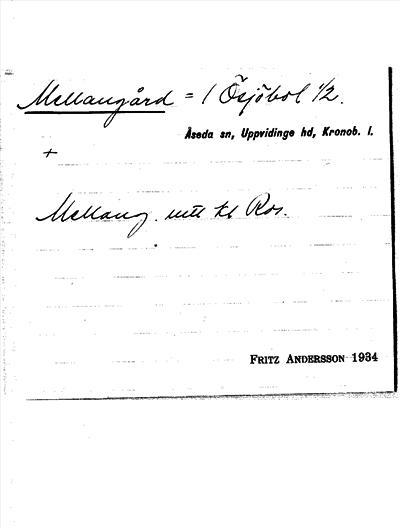 Mellangård = 1 Ösjöbol 1/2.
Åseda sn, Uppvidinge hd, Kronob. l.
+
Mellang. utt kl Ros.
FRITZ ANDERSSON 1934